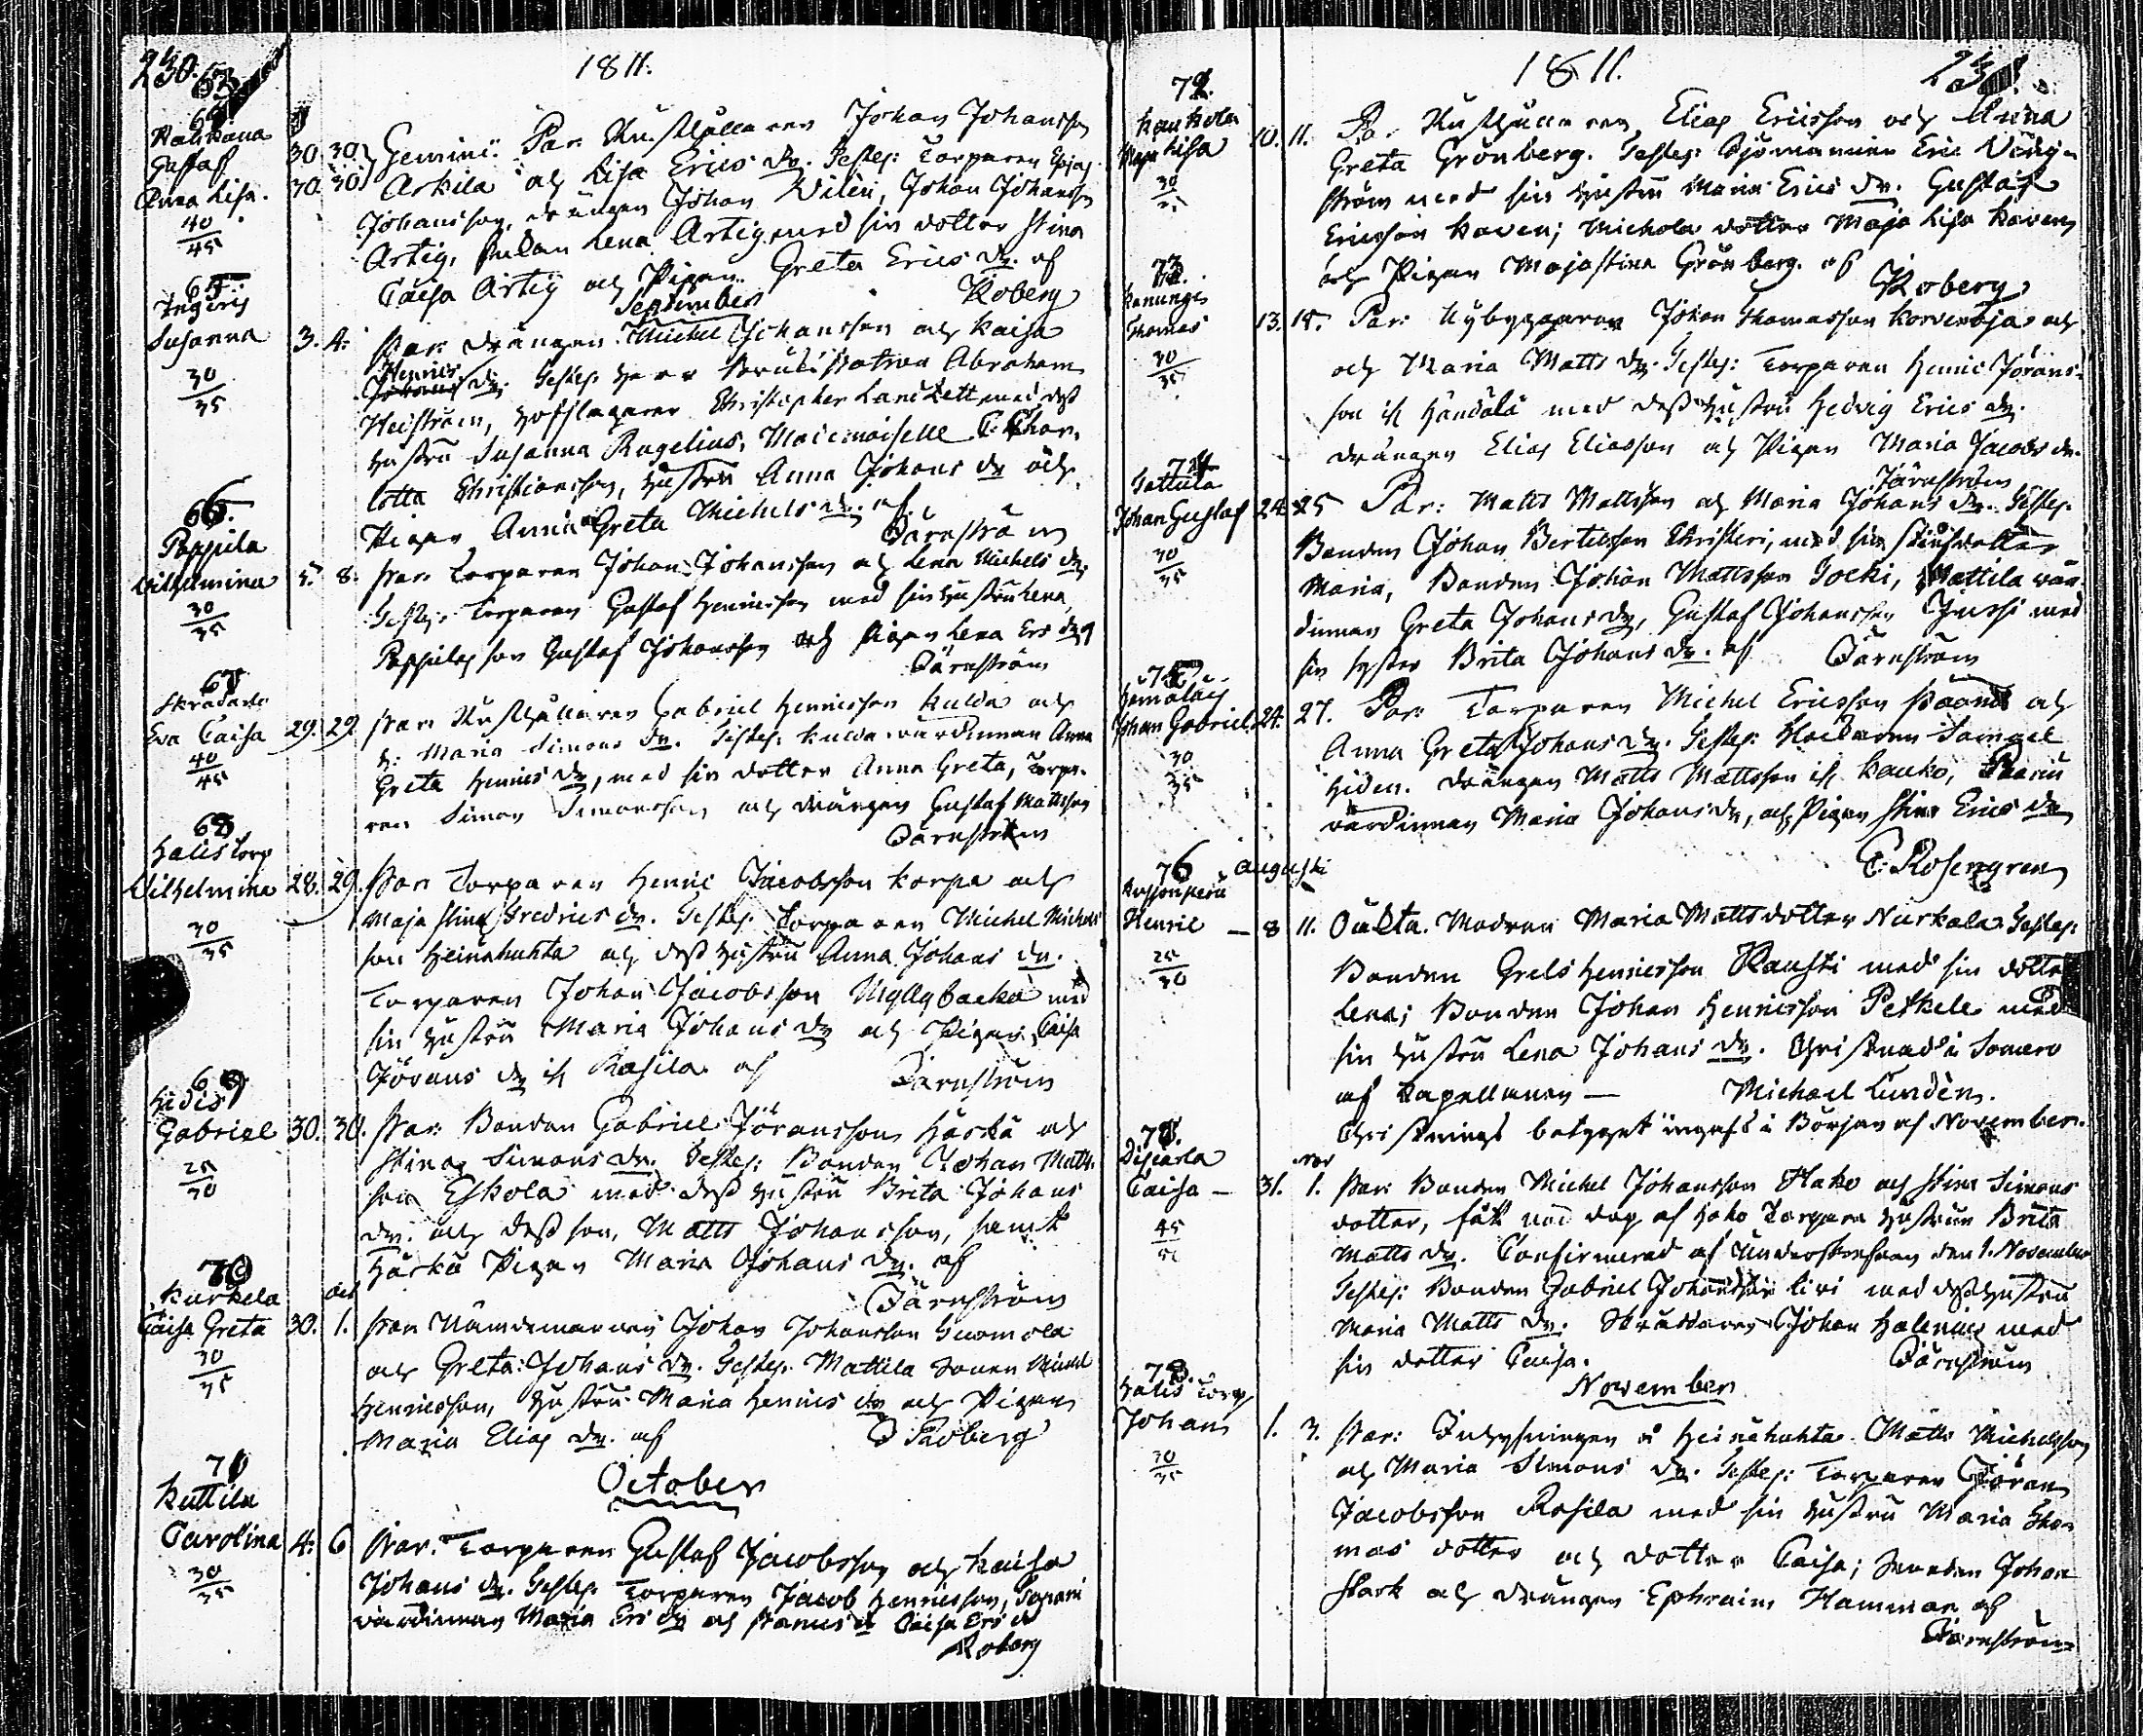 230.
1811.
63
64
Kaukana
Gustaf 30. 30.
Anna Lisa. 30. 30.
40
45
Gemini. Par. Kusthållaren Johan Johansson
Arkila och Lisa Erics dr. Testes: Torparen
Johansson, drängen Johan Widen, Johan Johansson
Artig, Enkan Lena Artig med sin dotter Stina
Caisa Artig och Pigan Greta Erics dr. af
Roberg
September
65.
Ingeris
Susanna 3. 4.
30
35
Par. drängen Michel Johansson och Kaisa
Henrics
dr. Testes: Herr Bruks Patron Abraham
Heiström, Hofslagaren Christopher Landzett med dess
hustru Susanna Rugelius, Mademoiselle Char-
lotta Christiansson, hustru Anna Johans dr och
Pigan Anna Greta Michels dr. af
Järnström
66.
Pappila
Wilhelmina 5. 8.
30
35
Par. Torparen Johan Johansson och Lena Michels dr.
Testes: Torparen Gustaf Henricsson med sin hustru Lena,
Pappilas son Gustaf Johansson och Pigan Lena Ers dr af
Järnström
67
Skräddars
Eva Caisa 29. 29
40
45
Par. Kusthållaren Gabriel Henricsson Kulda och
h. Maria Simons dr. Testes: Kulda wärdinnan Anna
Greta Henrics dr, med sin dotter Anna Greta, Torpa-
ren Simon Simonsson och drängen Gustaf Mattsson
Järnström
68
Halis Torp
Wilhelmina 28. 29.
30
35
Par. Torparen Henric Jacobsson Korpa och
Maja Stina Fredrics dr. Testes: Torparen Michel Michels
son Heinähuhta och dess hustru Anna Johans dr.
Torparen Johan Jacobsson Myllybacka med
sin hustru Maria Johans dr och Pigan Caisa
Jörans dr ifr. Rasila af Järnström
69
Hidis
Gabriel 30. 30.
25
30
Par. Bonden Gabriel Jöransson Härkä och
Stina Simons dr. Testes: Bonden Johan Matts
son Eskola med dess hustru Brita Johans
dr. och dess son, Matts Johansson, samt
Härkä Pigan Maria Johans dr. af
Järnström
70
Kurkela oct
Caisa Greta 30. 1.
30
35
Par. Nämdemannen Johan Johansson Suomola
och Greta Johans dr. Testes: Mattila sonen Michel
Henricsson, hustru Maria Henrics dr och Pigan
Maria Elias dr. af Roberg
October
71
Kuttila
Carolina 4. 6
30
35
Par. Torparen Gustaf Jacobsson och Kaisa
Johans dr. Testes: Torparen Jacob Henricsson,
wärdinnan Maria Ers dr och Caisa Ers dr
Roberg
1811.
231.
72.
Kaukola
Maja Lisa 10. 11.
30
35
Par. Kusthållaren Elias Ericsson och Anna
Greta Grönberg. Testes: Sjömannen Eric Weng-
ström med sin hustru Maria Erics dr. Gustaf
Ericsson Kaven; Michola dotter Maja Lisa Kaven
och Pigan Maja Stina Grönberg. af
Roberg
73.
Kanungi
Thomas 13. 15.
30
35
Par: Nybyggaren Johan Thomasson Korvenoja och
och Maria Matts dr. Testes: Torparen Henric Jörans-
son ifr. Händälä med dess hustru Hedvig Erics dr.
drängen Elias Eliasson och Pigan Maria Jacobs dr.
Järnström
74
Tattula
Johan Gustaf 24. 25
30
35
Par: Matts Mattsson och Maria Johans dr. Testes:
Bonden Johan Bertilsson Christeri, med sin
Maria, Bonden Johan Mattsson Jocki, Mattila wär-
dinnan Greta Johans dr, Gustaf Johansson Jussi med
sin syster Brita Johans dr. af Järnström
75
Hämäläis
Johan Gabriel 24. 27.
30
35
Par: Torparen Michel Ericsson och
Anna Greta Johans dr. Testes: Klockaren Samuel
Hiden. drängen Matts Mattsson ifr. Kauko,
wärdinnan Maria Johans dr, och Pigan Stina Erics dr
C. Rosengren
76 augusti
Henric — 8 11.
25
30
Oäkta. Modren Maria Matts dotter Nurkala. Testes:
Bonden Grels Henricsson Rausti med sin dotter
Lena; Bonden Johan Henricsson Peškele med
sin hustru Lena Johans dr. Christnad i Somero
af Capellanen — Michael Lunden.
Christnings betyget ingafs i Början af November.
77.
Discarla nov
Caisa — 31. 1.
45
Par. Bonden Michel Johansson Hako och Stina Simons
dotter, fått nöd dop af Hako Torpare hustrun Brita
Matts dr. Confirmerad af Underskrefven den 1. November
Testes: Bonden Gabriel Johansson Livi med dess hustru
Maria Matts dr. Skräddaren Johan Halenius med
sin dotter Caisa. Järnström
November
78.
Halis Torp
Johan 1. 3.
30
35
Par: Inhysningen å Heinähuhta Matts Michelsson
och Maria Simons dr. Testes: Torparen Jöran
Jacobsson Rasila med sin hustru Maria Tho-
mas dotter och dotter Caisa; Johan
Stark och drängen Ephraim Hammar af
Järnström